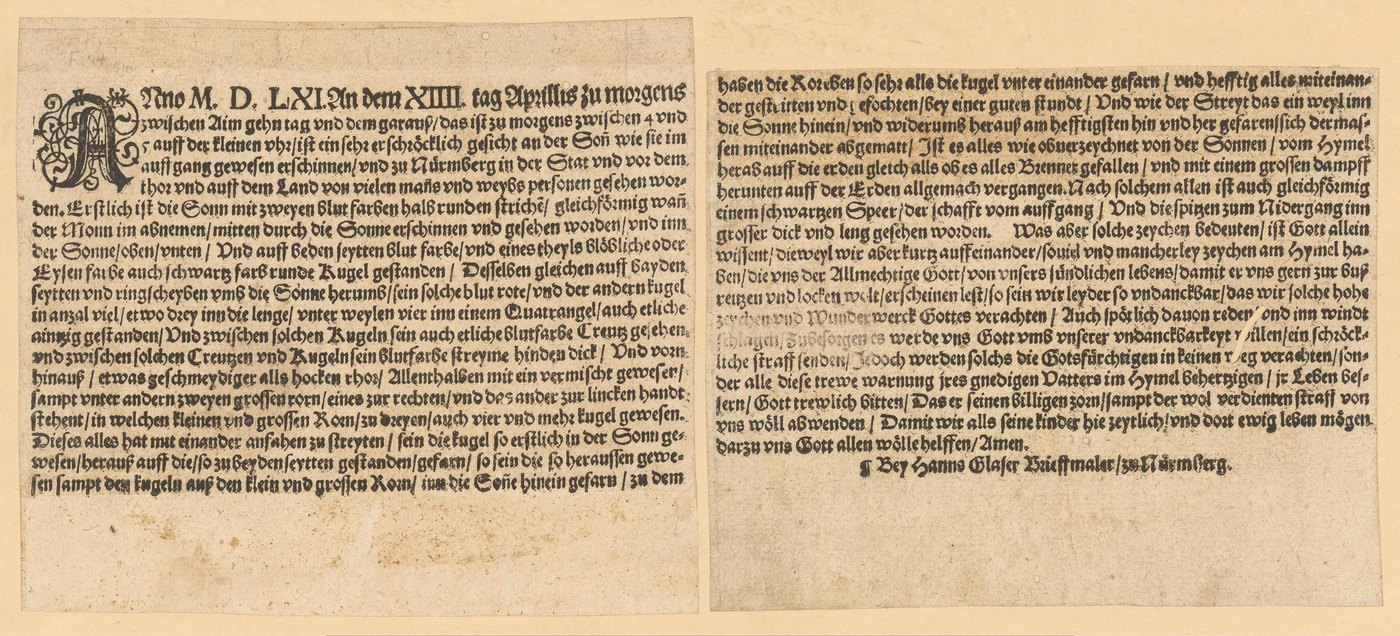 ANno M. D. LXI. An dem XIIII. tag Aprillis zu morgens
zwischen Aim gehn tag vnd dem garauß/ das ist zu morgens zwischen 4 vnd
5 auff der kleinen vhr/ ist ein sehr erschröcklich gesicht an der Soñ wie sie im
auffgang gewesen erschinnen/ vnd zu Nürmberg in der Stat vnd vor dem
thor vnd auff dem Land von vielen mañs vnd weybs personen gesehen wor-
den. Erstlich ist die Sonn mit zweyen blut farben halb runden strichẽ/ gleichförmig wañ
der Monn im abnemen/ mitten durch die Sonne erschinnen vnd gesehen worden/ vnd inn
der Sonne/ oben/ vnten/ Vnd auff beden seytten blut farbe/ vnd eines theyls blöbliche oder
Eysen farbe auch schwartz farb runde Kugel gestanden/ Desselben gleichen auff bayden
seytten vnd ringscheyben vmb die Sonne herumb/ sein solche blut rote/ vnd der andern kugel
in anzal viel/ etwo drey inn die lenge/ vnter weylen vier inn einem Quatrangel/ auch etliche
aintzig gestanden/ Vnd zwischen solchen Kugeln sein auch etliche blutfarbe Creutz gesehen
vnd zwischen solchen Creutzen vnd Kugeln sein blutfarbe streyme hinden dick/ Vnd vorn
hinauß/ etwas geschmeydiger alls hocken rhor/ Allenthalben mit ein vermischt gewesen/
sampt vnter andern zweyen grossen rorn/ eines zur rechten/ vnd das ander zur lincken handt
stehent/ in welchen kleinen vnd grossen Rorn/ zu dreyen/ auch vier vnd mehr kugel gewesen.
Dieses alles hat mit einander anfahen zu streyten/ sein die kugel so erstlich in der Sonn ge-
wesen/ herauß auff die/ so zu beyden seytten gestanden/ gefarn/ so sein die so heraussen gewe-
sen sampt den kugeln auß den klein vnd grossen Rorn/ inn die Soñe hinein gefarn/ zu dem
haben die Roreben so sehr alls die kugel vnter einander gefarn/ vnd hefftig alles miteinan-
der gestritten vnd gefochten/ bey einer guten stundt/ Vnd wie der Streyt das ein weyl inn
die Sonne hinein/ vnd widerumb herauß am hefftigsten hin vnd her gefaren/ sich dermas-
sen miteinander abgematt/ Ist es alles wie oberzeychnet von der Sonnen/ vom Hymel
herab auff die erden gleich alls ob es alles Brennet gefallen/ vnd mit einem grossen dampff
herunten auff der Erden allgemach vergangen. Nach solchem allen ist auch gleichförmig
einem schwartzen Speer/ der schafft vom auffgang/ Vnd die spitzen zum Nidergang inn
grosser dick vnd leng gesehen worden. Was aber solche zeychen bedeuten/ ist Gott allein
wissent/ dieweyl wir aber kurtz auff einander/ souiel vnd mancherley zeychen am Hymel ha-
ben/ die vns der Allmechtige Gott/ von vnsers sündlichen lebens/ damit er vns gern zur buß
reitzen vnd locken wolt/ erscheinen lest/ so sein wir leyder so vndanckbar/ das wir solche hohe
zeychen vnd Wunderwerck Gottes verachten/ Auch spötlich dauon reden vnd inn windt
schlagen/ zubesorgen es werde vns Gott vmb vnserer vndanckbarkeyt willen/ ein schröck-
liche straff senden/ Jedoch werden solchs die Gotsfürchtigen in keinen weg verachten/ son-
der alle diese trewe warnung jres gnedigen Vatters im Hymel behertzigen/ jr Leben bes-
sern/ Gott trewlich bitten/ Das er seinen billigen zorn/ sampt der wol verdienten straff von
vns wöll abwenden/ Damit wir alls seine kinder hie zeytlich/ vnd dort ewig leben mögen
darzu vns Gott allen wölle helffen/ Amen.
¶ Bey Hanns Glaser Brieffmaler/ zu Nürmberg.